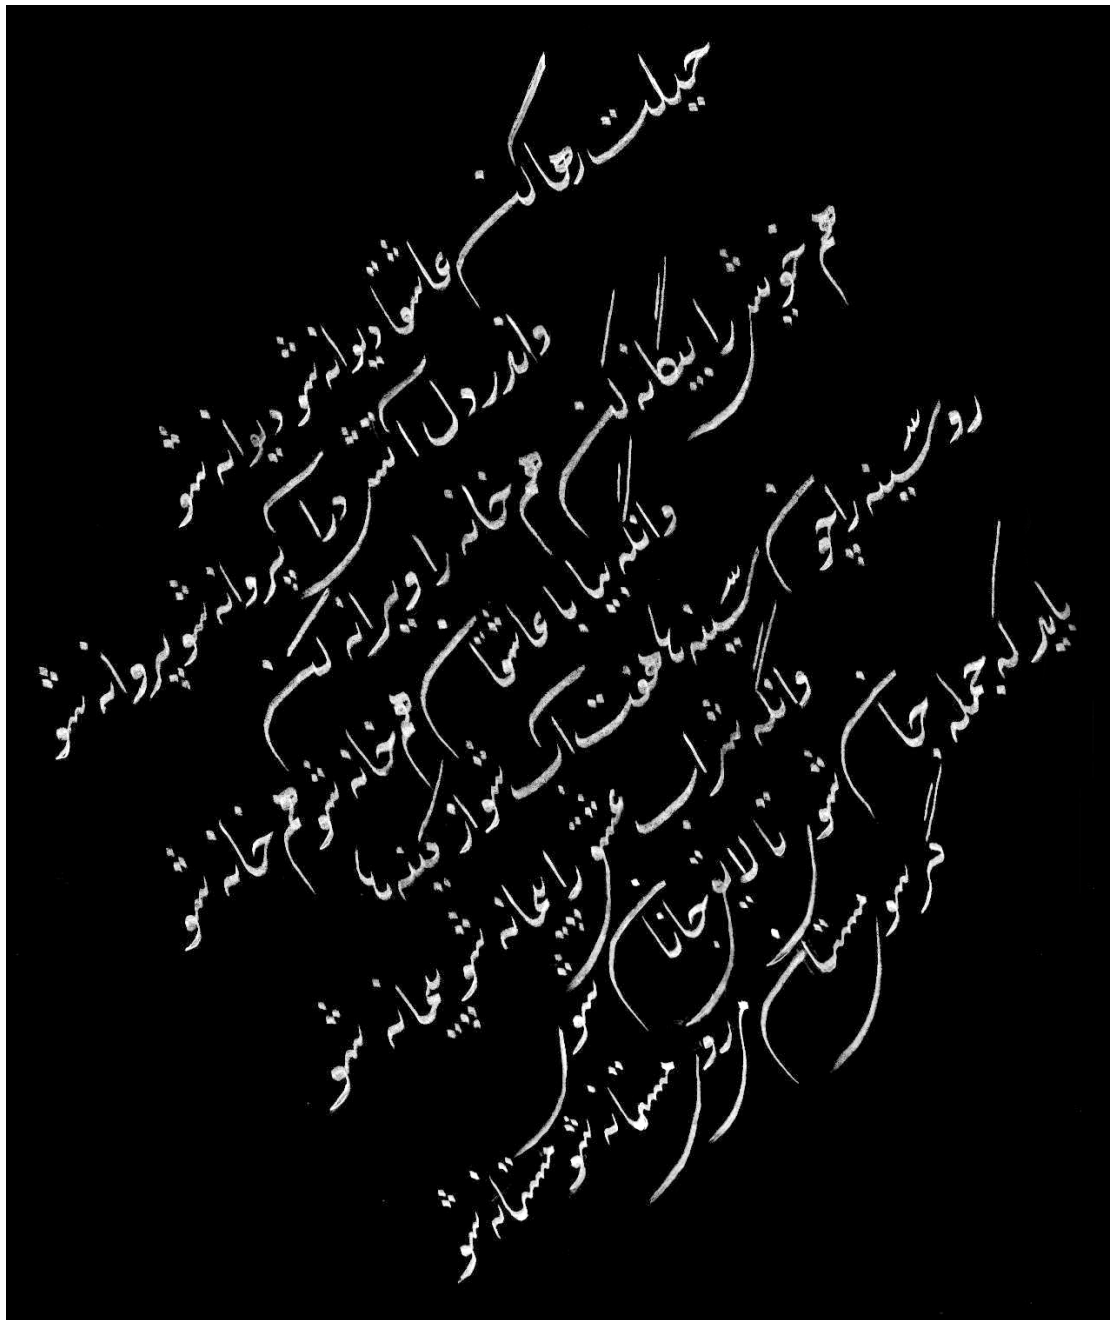 حیلت رها کن عاشقا دیوانه شو دیوانه شو
واندر دل آتش درآ پروانه شو پروانه شو
هم خویش را بیگانه کن هم خانه را ویرانه کن
وانگه بیا با عاشقان هم خانه شو هم خانه شو
رو سینه را چون سینه ها هفت آب شو از کینه ها
وانگه شراب عشق را پیمانه شو پیمانه شو
باید که جمله جان شوی تا لایق جانان شوی
گر سوی مستان می روی مستانه شو مستانه شو